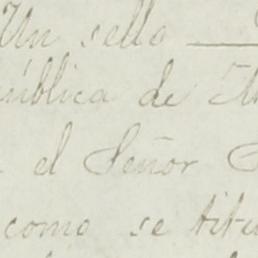 Un sello
pública de
el Señor
como se titu